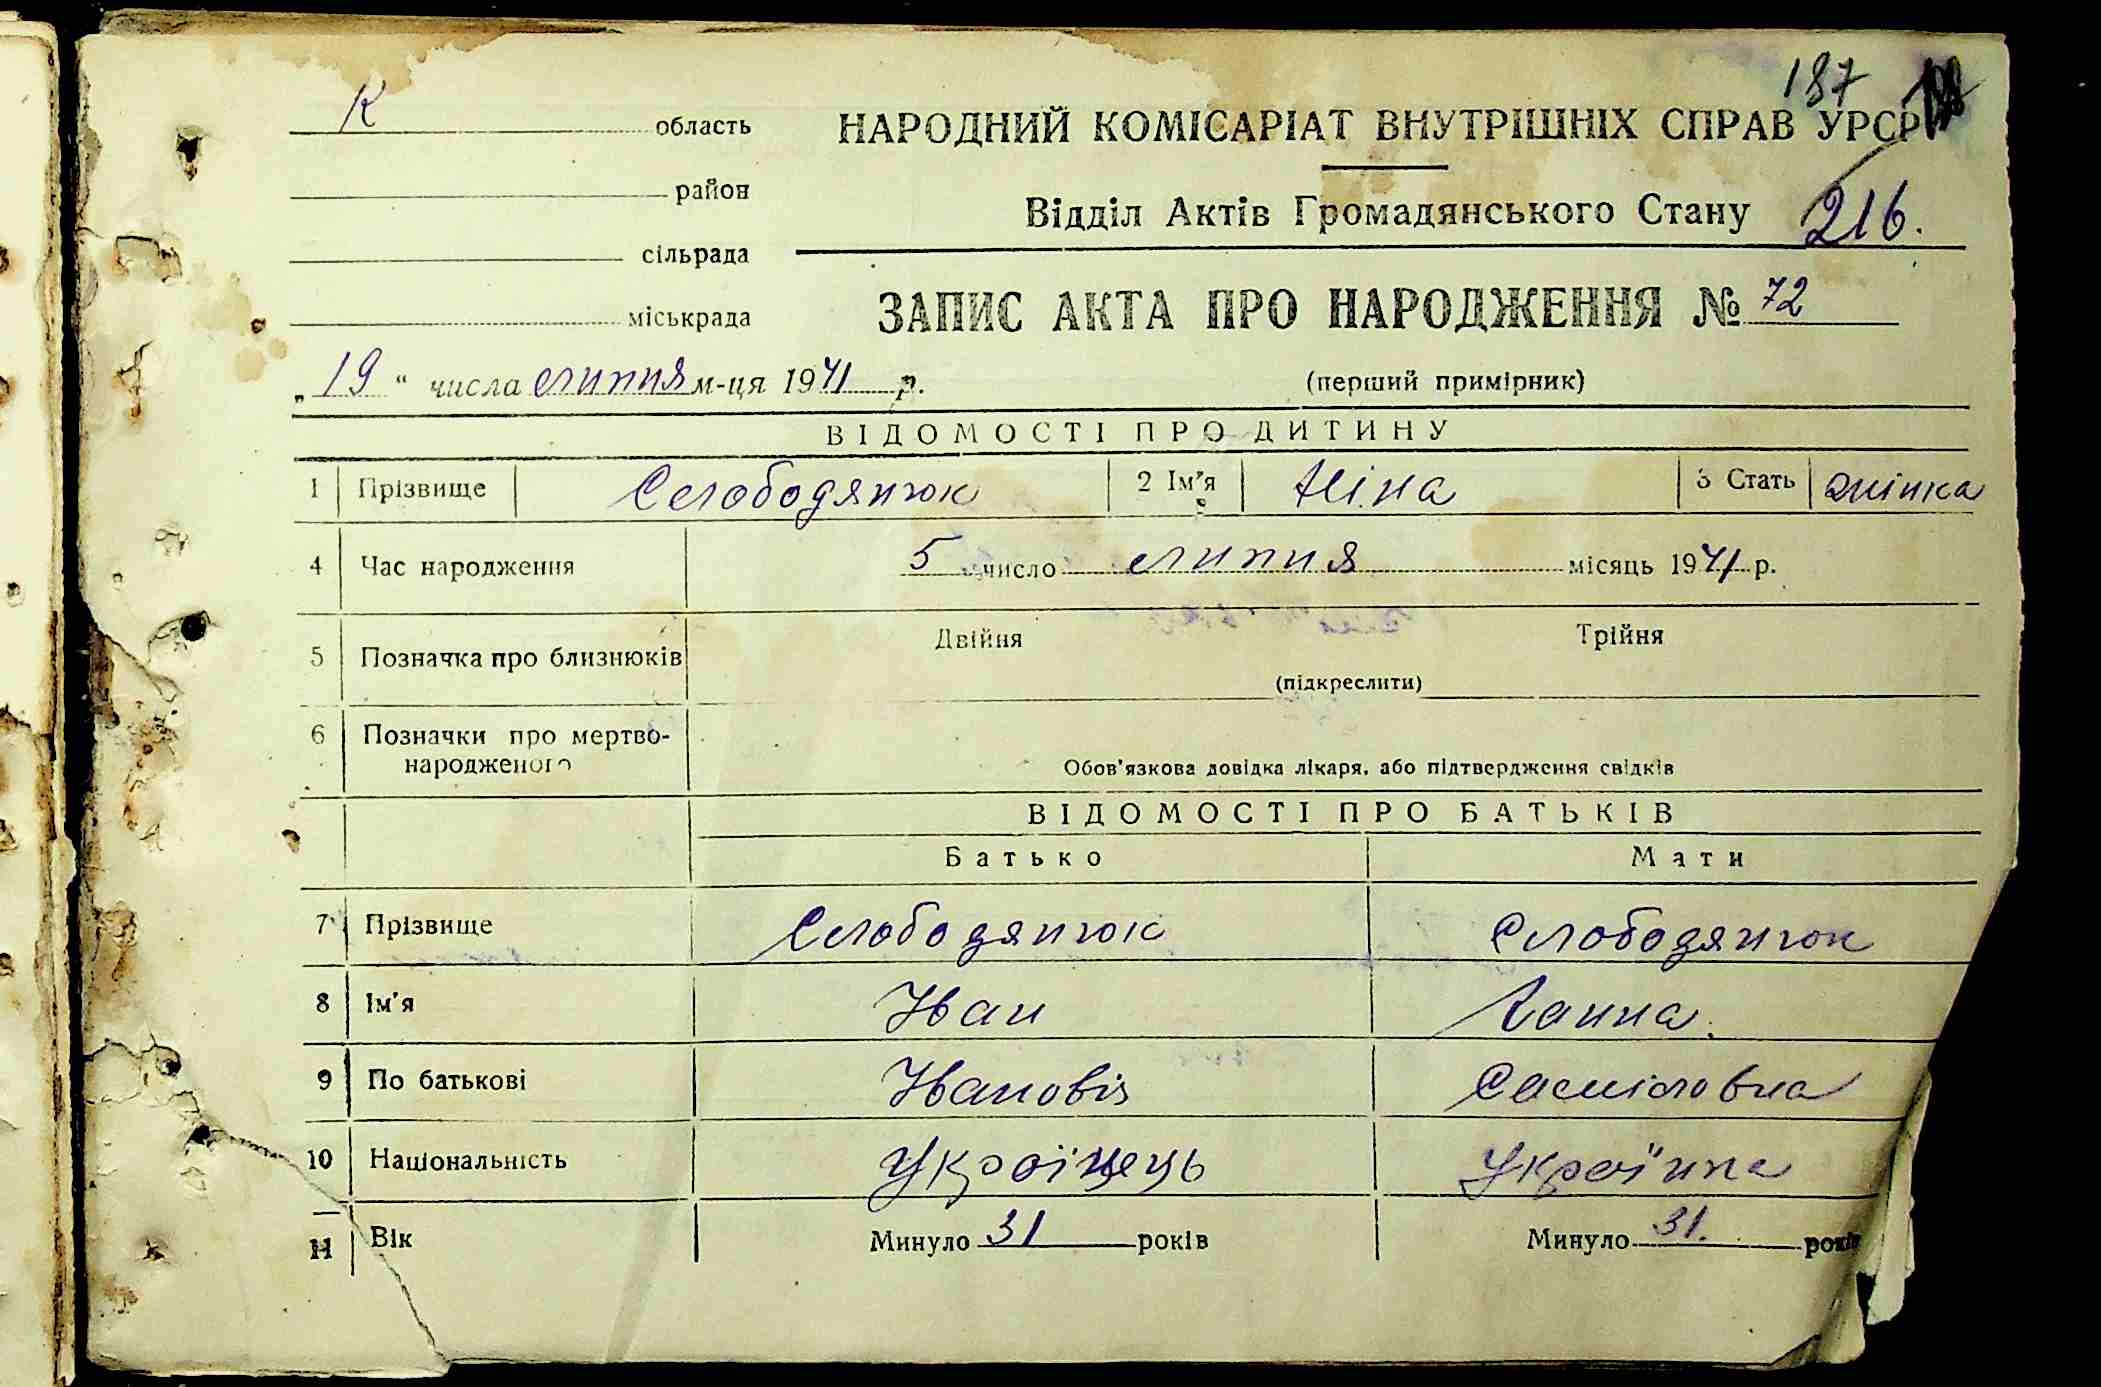 187
К область
НАРОДНИЙ КОМІСАРІАТ ВНУТРІШНІХ СПРАВ УРСР
район
Відділ Актів Громадянського Стану 216.
сільрада
міськрада
ЗАПИС АКТА ПРО НАРОДЖЕННЯ № 72
„19“ числа липня м-ця 1941 р.
(перший примірник)
ВІДОМОСТІ ПРО ДИТИНУ
1 Прізвище Слободянюк 2 Ім'я Ніна 3 Стать жінка
4 Час народження 5 число липня місяць 1941 р.
5 Позначка про близнюків Двійня Трійня
(підкреслити)
6 Позначки про мертво-
народженого Обов'язкова довідка лікаря, або підтвердження свідків
ВІДОМОСТІ ПРО БАТЬКІВ
Батько Мати
7 Прізвище Слободянюк Слободянюк
8 Ім'я Іван Ганна.
9 По батькові Іванович Самійловна
10 Національність Українець Українка
11 Вік Минуло 31 років Минуло 31. років